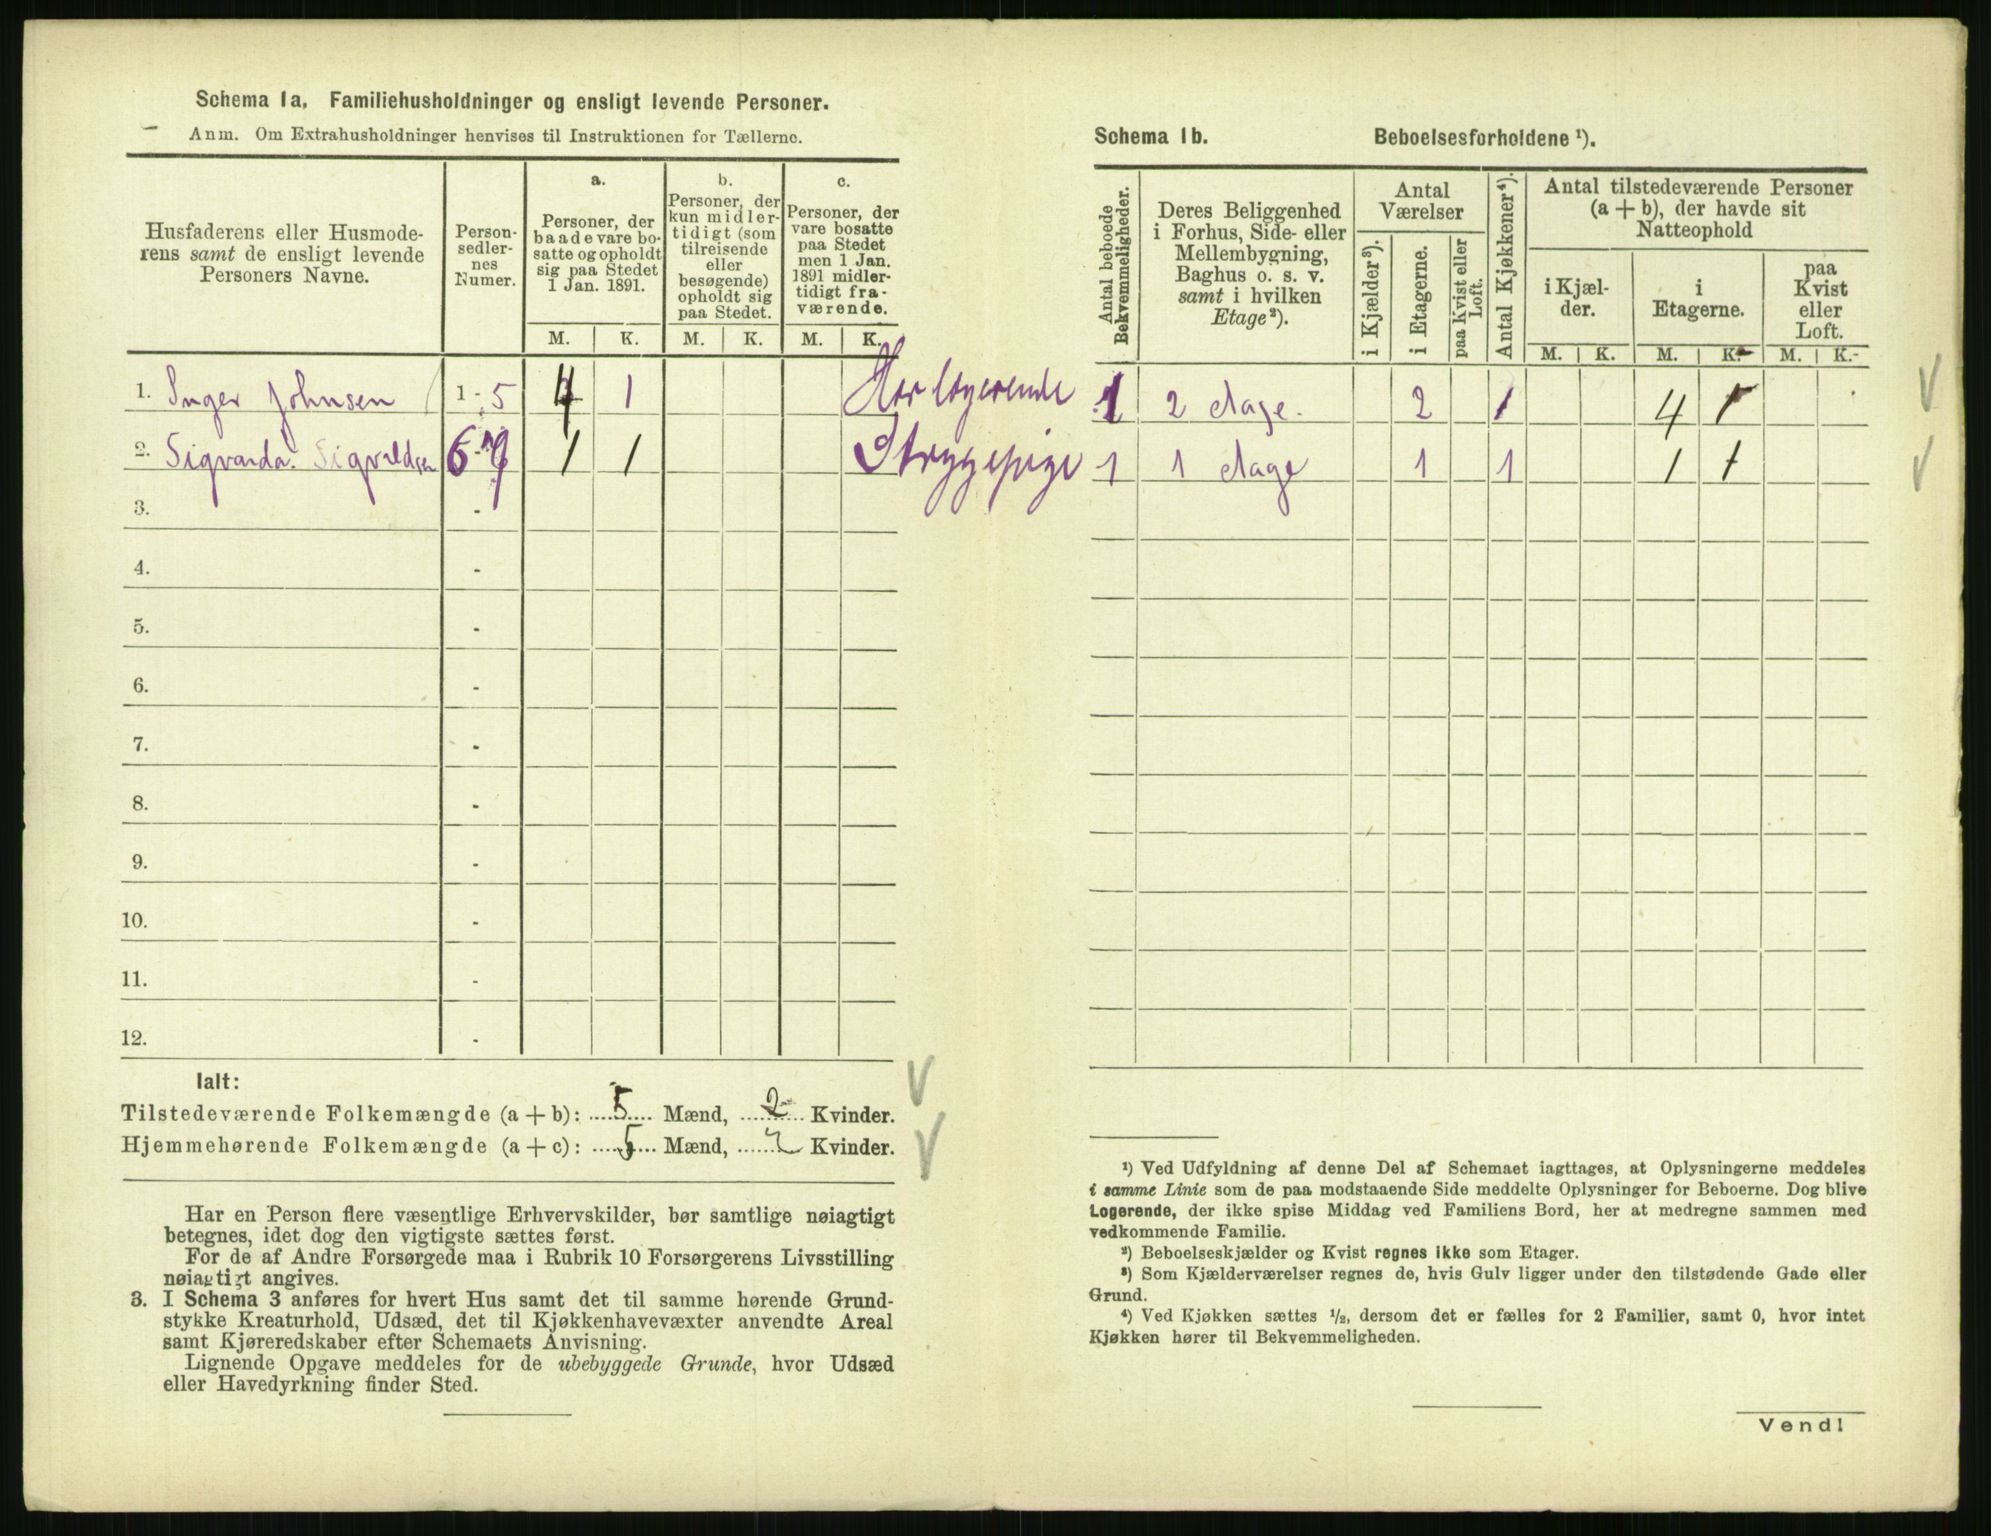 Schema 1a. Familiehusholdninger og ensligt levende Personer.
Anm. Om Extrahusholdninger henvises til Instruktionen for Tællerne.
Husfaderens eller Husmode-
rens samt de ensligt levende
Personers Navne.
Person-
sedler-
nes
Numer.
a.
Personer, der
baade vare bo-
satte og opholdt
sig paa Stedet
1 Jan. 1891.
M. K.
b.
Personer, der
kun midler-
tidigt (som
tilreisende
eller
besøgende)
opholdt sig
paa Stedet.
M. K.
c.
Personer, der
vare bosatte
paa Stedet
men 1 Jan.
1891 midler-
tidigt fra-
værende.
M. K.
1. Inger Johnsen 1 - 5 4 1 Har logerende
2. Sigvarda Sigvaldsen 6 - 1 1 Strygepige
3. -
4. -
5. -
6. -
7. -
8. -
9. -
10. -
11. -
12. -
Ialt:
Tilstedeværende Folkemængde (a + b): 5 Mænd, 2 Kvinder.
Hjemmehørende Folkemængde (a + c): 5 Mænd, 2 Kvinder.
Har en Person flere væsentlige Erhvervskilder, bør samtlige nøiagtigt
betegnes, idet dog den vigtigste sættes først.
For de af Andre Forsørgede maa i Rubrik 10 Forsørgerens Livsstilling
nøiagtigt angives.
3. I Schema 3 anføres for hvert Hus samt det til samme hørende Grund-
stykke Kreaturhold, Udsæd, det til Kjøkkenhavevæxter anvendte Areal
samt Kjøreredskaber efter Schemaets Anvisning.
Lignende Opgave meddeles for de ubebyggede Grunde, hvor Udsæd
eller Havedyrkning finder Sted.
Schema 1b. Beboelsesforholdene ¹).
Antal beboede
Bekvemmeligheder.
Deres Beliggenhed
i Forhus, Side- eller
Mellembygning,
Baghus o. s. v.
samt i hvilken
Etage²).
Antal
Værelser
i Kjælder³).
i Etagerne.
paa Kvist eller
Loft.
Antal Kjøkkener⁴).
Antal tilstedeværende Personer
(a + b), der havde sit
Natteophold
i Kjæl-
der.
i
Etagerne.
paa
Kvist
eller
Loft.
M. K. M. K. M. K.
1 2 Etage. 2 1 4 1
1 1 Etage 1 1 1 1
¹) Ved Udfyldning af denne Del af Schemaet iagttages, at Oplysningerne meddeles
i samme Linie som de paa modstaaende Side meddelte Oplysninger for Beboerne. Dog blive
Logerende, der ikke spise Middag ved Familiens Bord, her at medregne sammen med
vedkommende Familie.
²) Beboelseskjælder og Kvist regnes ikke som Etager.
³) Som Kjælderværelser regnes de, hvis Gulv ligger under den tilstødende Gade eller
Grund.
⁴) Ved Kjøkken sættes ½, dersom det er fælles for 2 Familier, samt 0, hvor intet
Kjøkken hører til Bekvemmeligheden.
Vend!